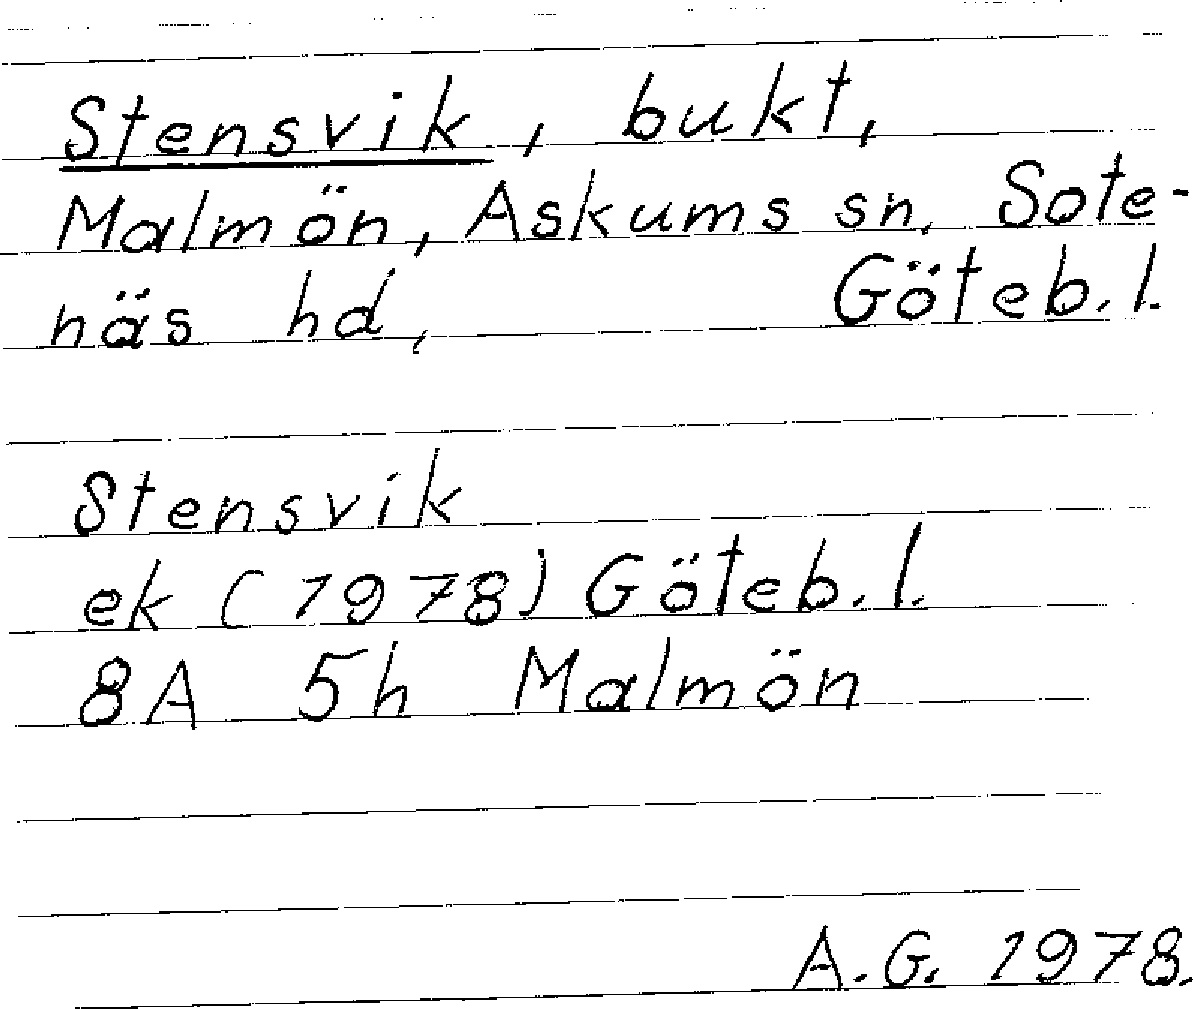 Stensvik, bukt,
Malmön, Askums sn. Sote-
näs hd, Göteb. l.
Stensvik
ek (1978) Göteb. l.
8A 5h Malmön
A.G. 1978.